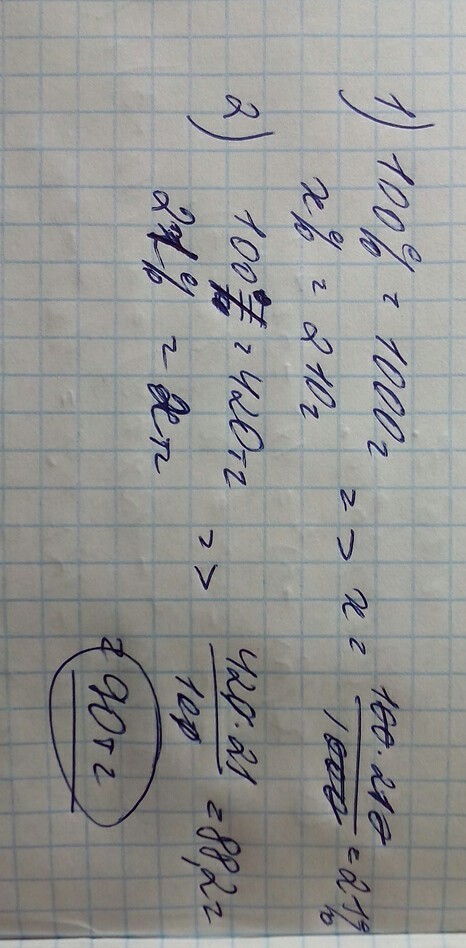 1) 100% = 1000г
x% = 210г => x = 100·210/1000 = 21%
2) 100% = 420тг
21% = xтг => 420·21/100 = 88,2 =
= 90тг